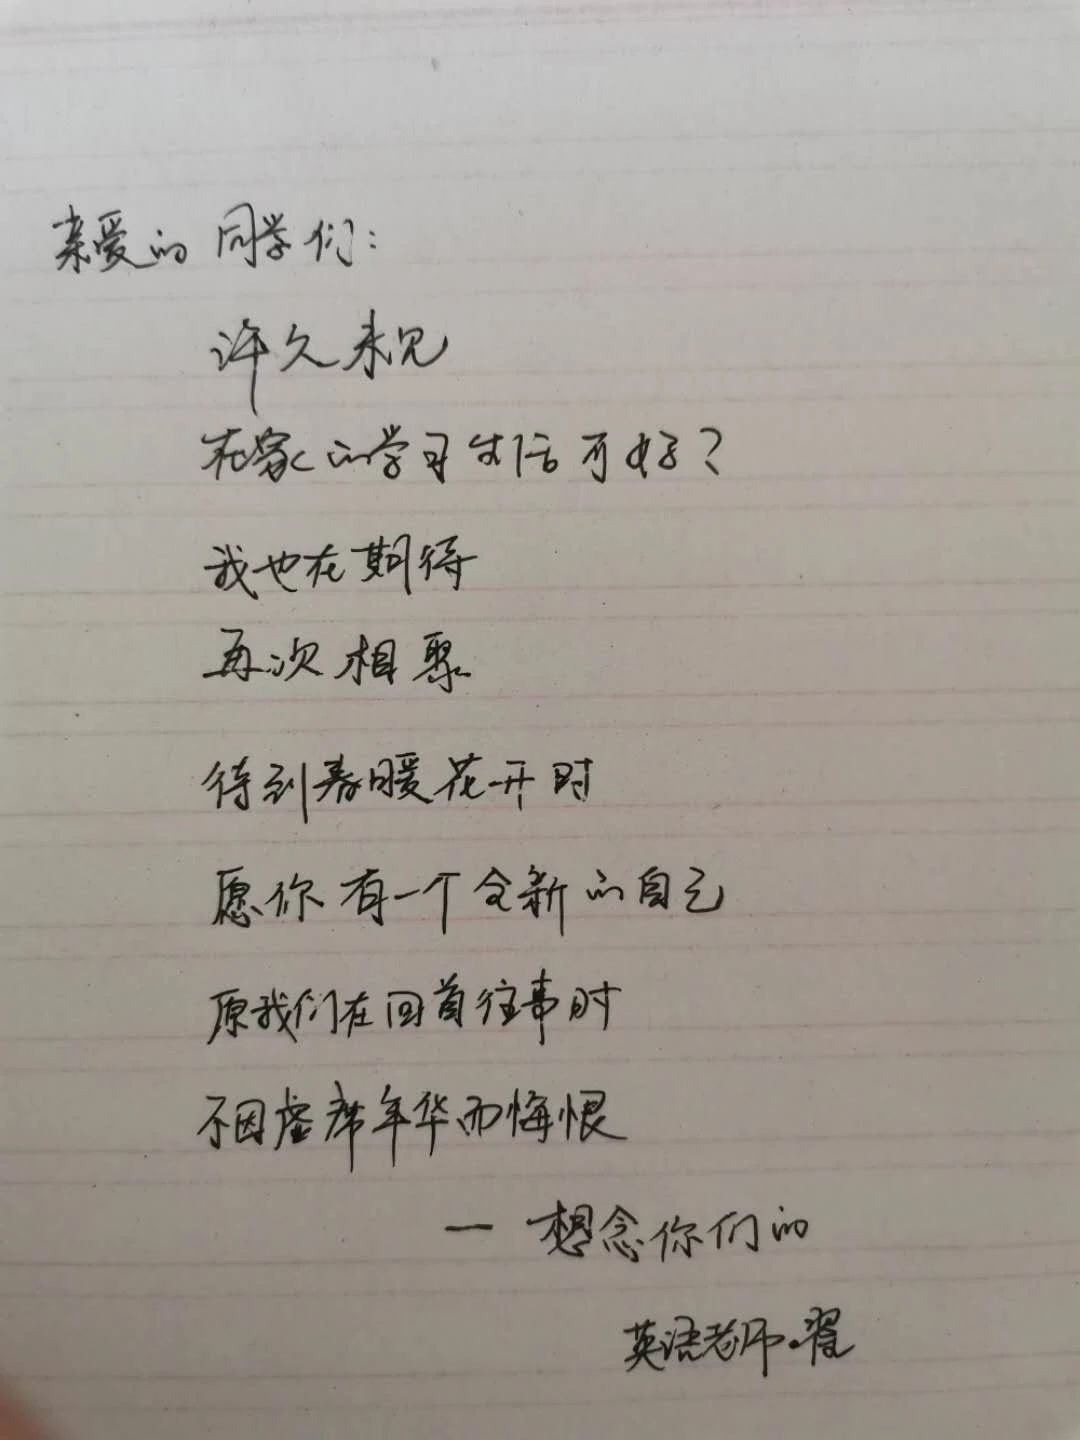 亲爱的同学们：
许久未见
在家的学习生活可好？
我也在期待
再次相聚
待到春暖花开时
愿你有一个全新的自己
原我们在回首往事时
不因虚席年华而悔恨
— 想念你们的
英语老师.翟